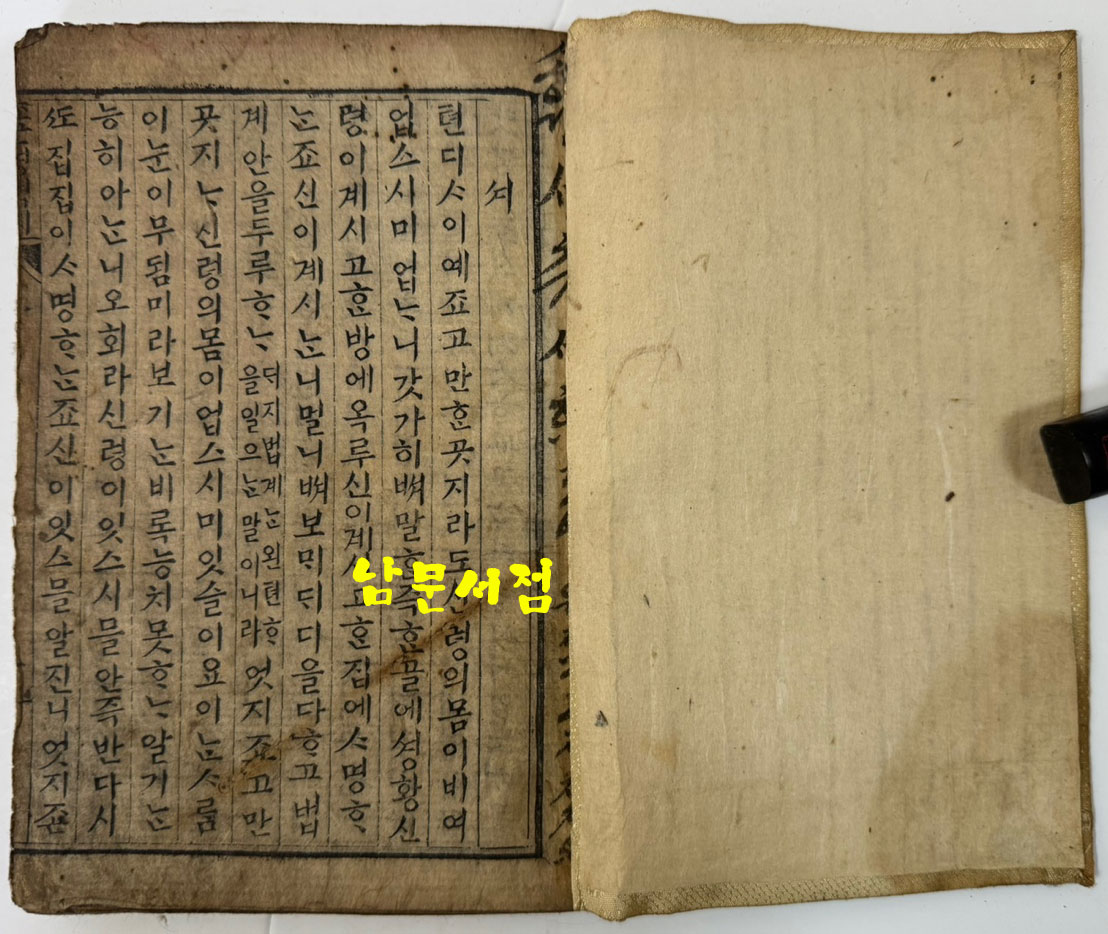 셔
텬디ᄉᆞ이예죠고만ᄒᆞᆫ곳지라도신령의몸이비여
업스시미업ᄂᆞ니갓가히뼈말ᄒᆞᆫ즉ᄒᆞᆫ믈에셩황신
령이계시고ᄒᆞᆫ방에옥루신이게시고ᄒᆞᆫ집에ᄉᆞ명ᄒᆞ
ᄂᆞᆫ죠신이계시ᄂᆞᆫ니멀니뼈보ᄆᆡ디을다ᄒᆞ고법
계안을두루ᄒᆞᄂᆞ
덕지법계ᄂᆞᆫ왼텬ᄒᆞ
을일으ᄂᆞᆫ말이니라
엇지죠고만
곳지ᄂᆞ신령의몸이업스시미잇슬이요이ᄂᆞᆫᄉᆞ룸
이눈이무됨미라보기ᄂᆞᆫ비록능치못ᄒᆞᄂᆞ알기ᄂᆞᆫ
능히아ᄂᆞᆫ니오회라신령이잇스시믈안즉반다시
ᄯᅩ집집이ᄉᆞ명ᄒᆞᄂᆞᆫ죠신이잇스믈알진니엇지죤
남문서점